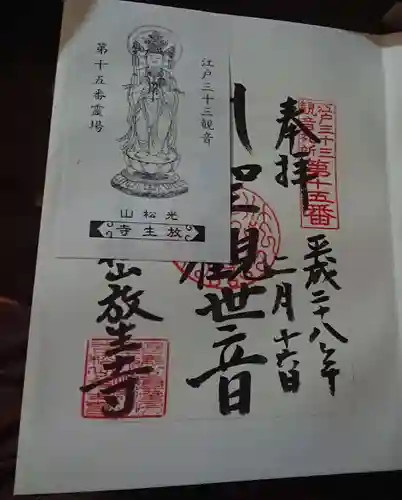 江戸三十三観音
第十五番霊場
光松山
放生寺
江戸三十三
観音札所
第十五番
奉拝
平成二十八年
二月十六日
観世音
山放生寺